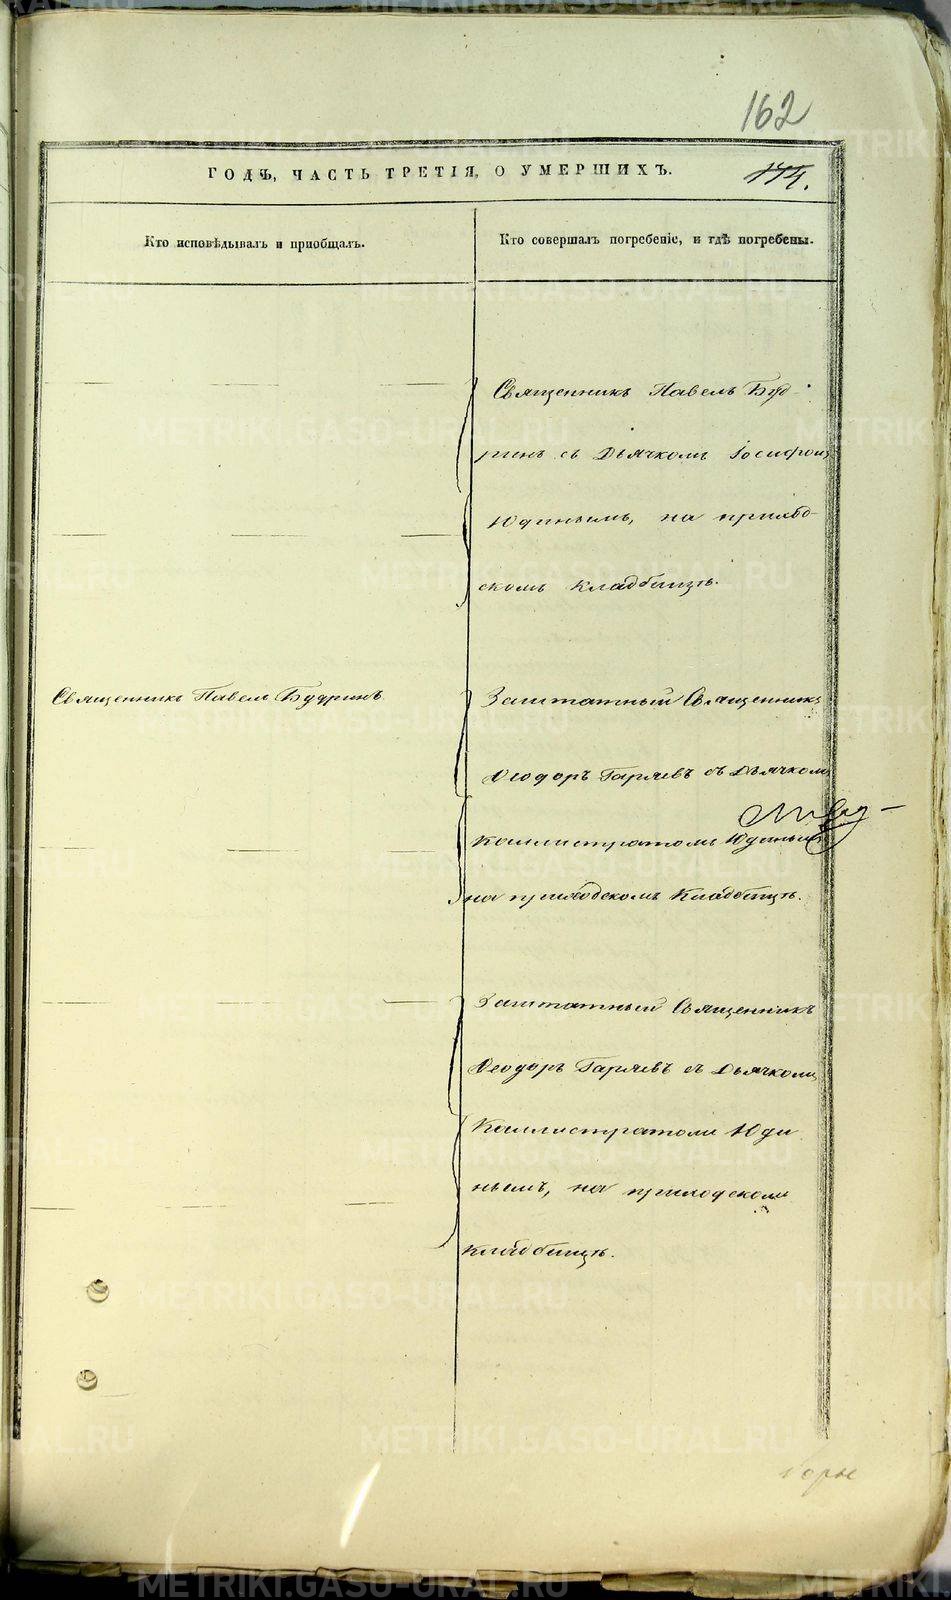 162
ГОДЪ, ЧАСТЬ ТРЕТІЯ, О УМЕРШИХЪ.
Кто исповѣдывалъ и приобщалъ.
Кто совершалъ погребеніе, и гдѣ погребены.
Священникъ Павелъ Буд-
ринъ съ Дьячкомъ Іосифомъ
Юдинымъ, на приход-
скомъ кладбищѣ.
Священникъ Павелъ Будринъ
Заштатный Священникъ
Ѳеодоръ Гаряевъ съ Дьячкомъ
Каллистратомъ Юдинымъ
на приходскомъ Кладбищѣ.
Заштатный Священникъ
Ѳеодоръ Гаряевъ съ Дьячкомъ
Каллистратомъ Юди
нымъ, на приходскомъ
кладбищѣ.
METRIKI.GASO-URAL.RU